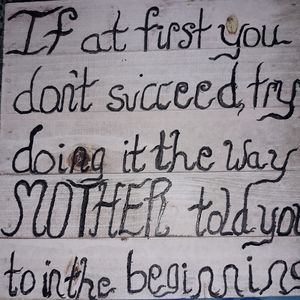 If at first you
don't succeed, try
doing it the way
MOTHER told you
to in the beginning